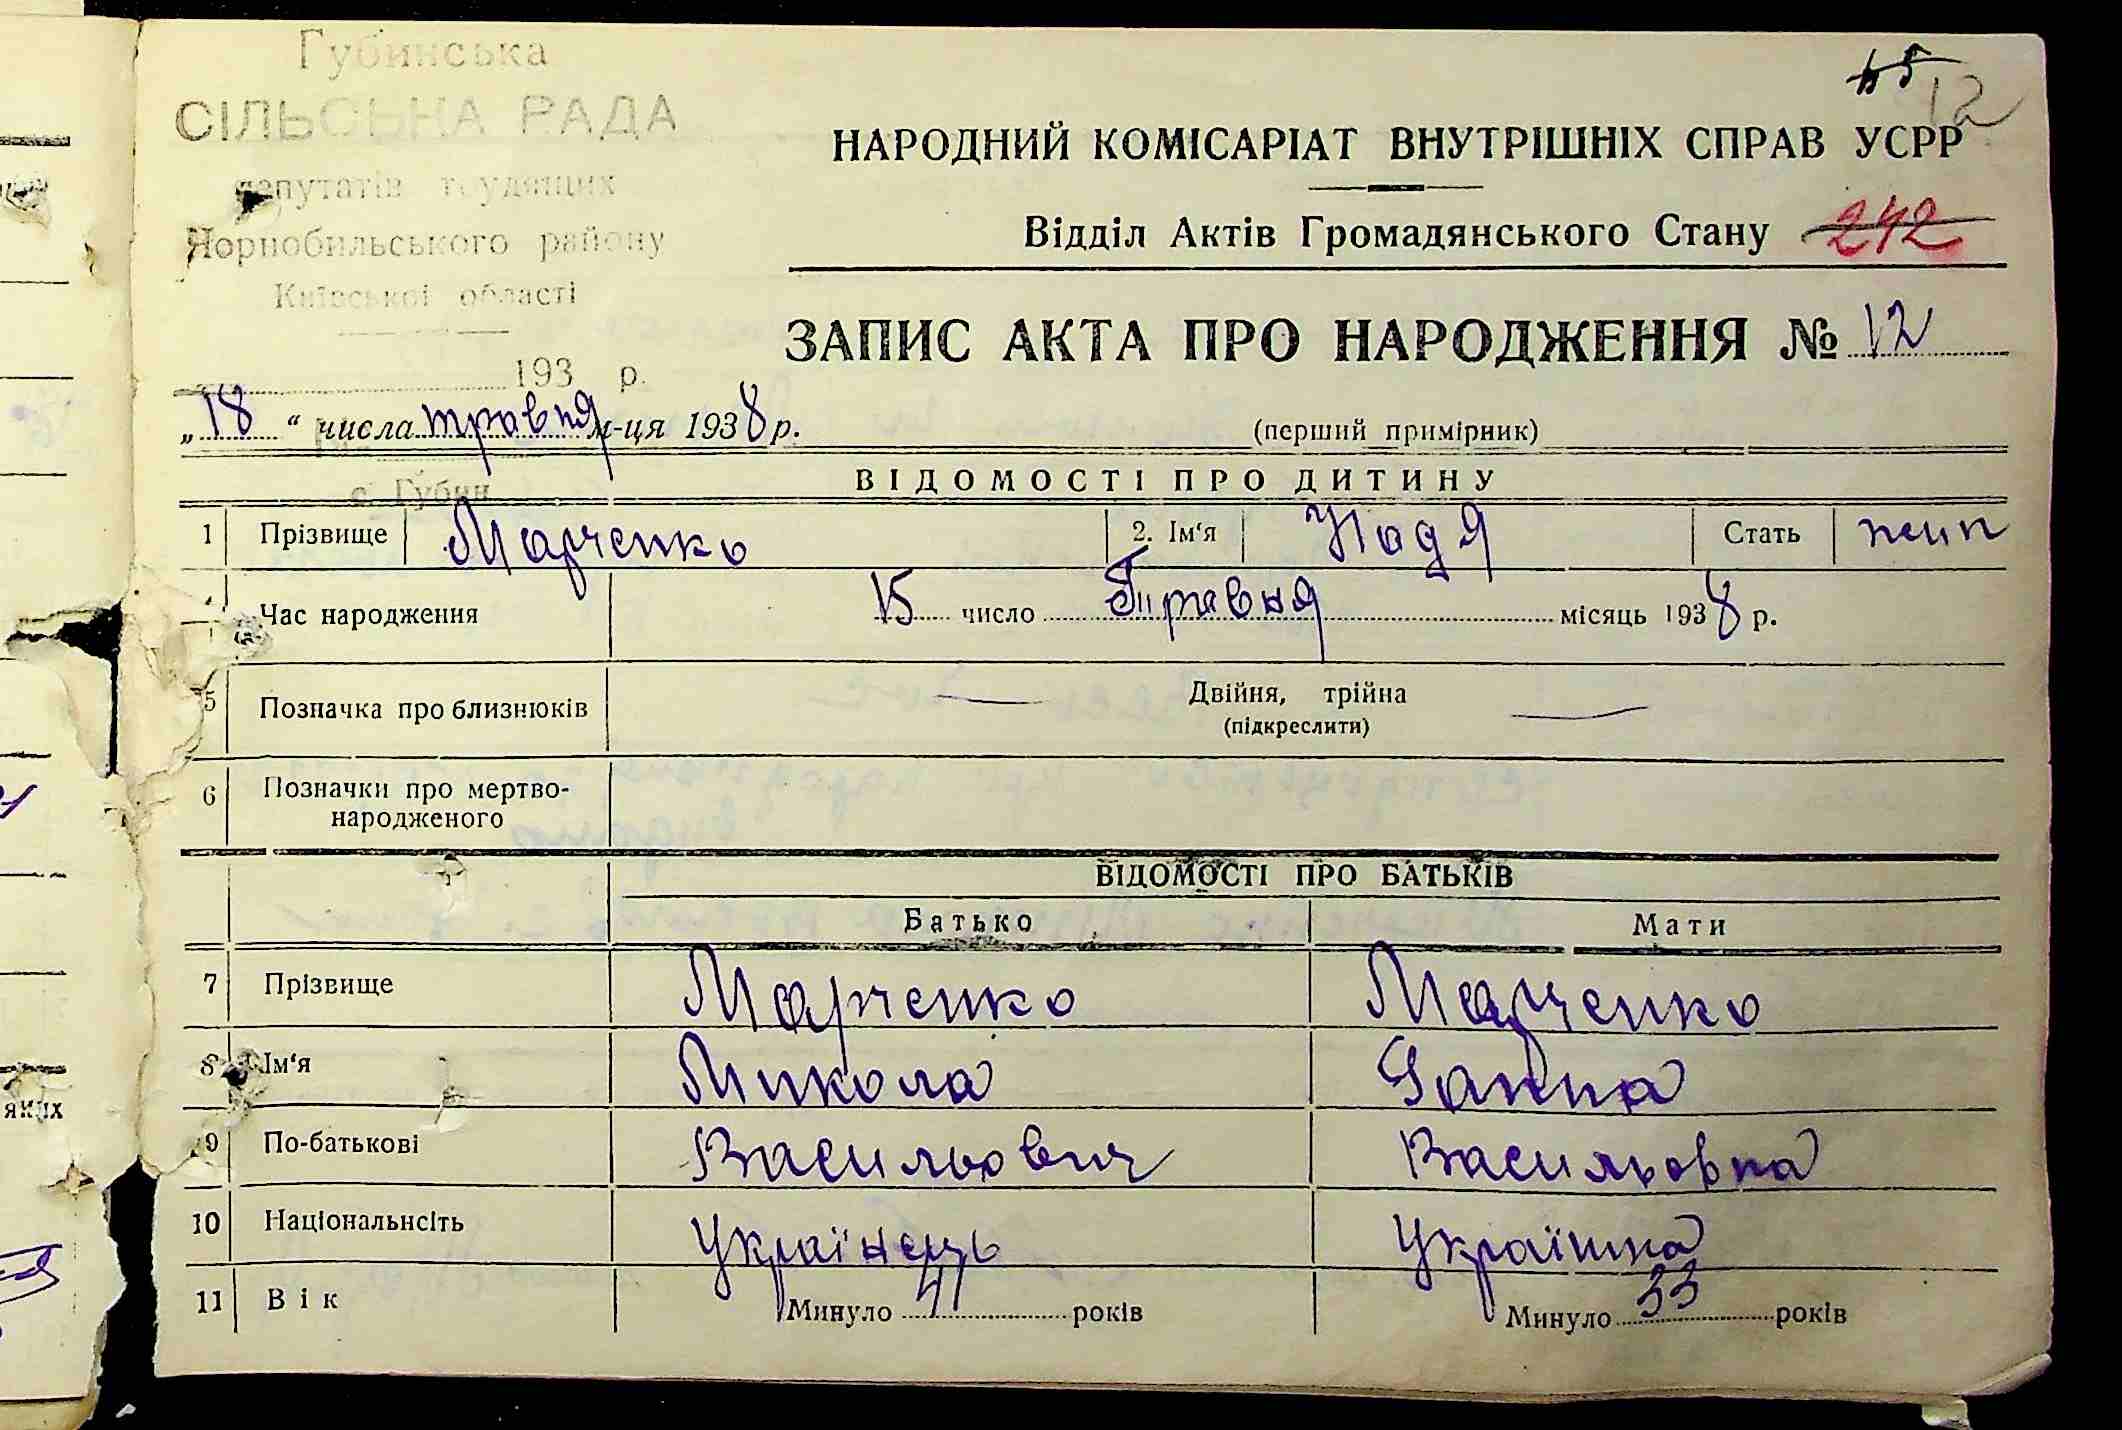 Губинська
СІЛЬСЬКА РАДА
депутатів трудящих
Чорнобильського району
Київської області
193 р.
с. Губин
12
НАРОДНИЙ КОМІСАРІАТ ВНУТРІШНІХ СПРАВ УСРР
Відділ Актів Громадянського Стану 242
ЗАПИС АКТА ПРО НАРОДЖЕННЯ № 12
„18“ числа травня м-ця 1938 р. (перший примірник)
ВІДОМОСТІ ПРО ДИТИНУ
1 Прізвище Марченко 2. Ім‘я Надя Стать жін
Час народження 15 число Травня місяць 1938 р.
5 Позначка про близнюків Двійня, трійна
(підкреслити)
6 Позначки про мертво-
народженого
ВІДОМОСТІ ПРО БАТЬКІВ
Батько Мати
7 Прізвище Марченко Марченко
8 Ім‘я Микола Ганна
9 По-батькові Васильович Васильовна
10 Національнсіть Українець Українка
11 Вік Минуло 41 років Минуло 33 років
яких